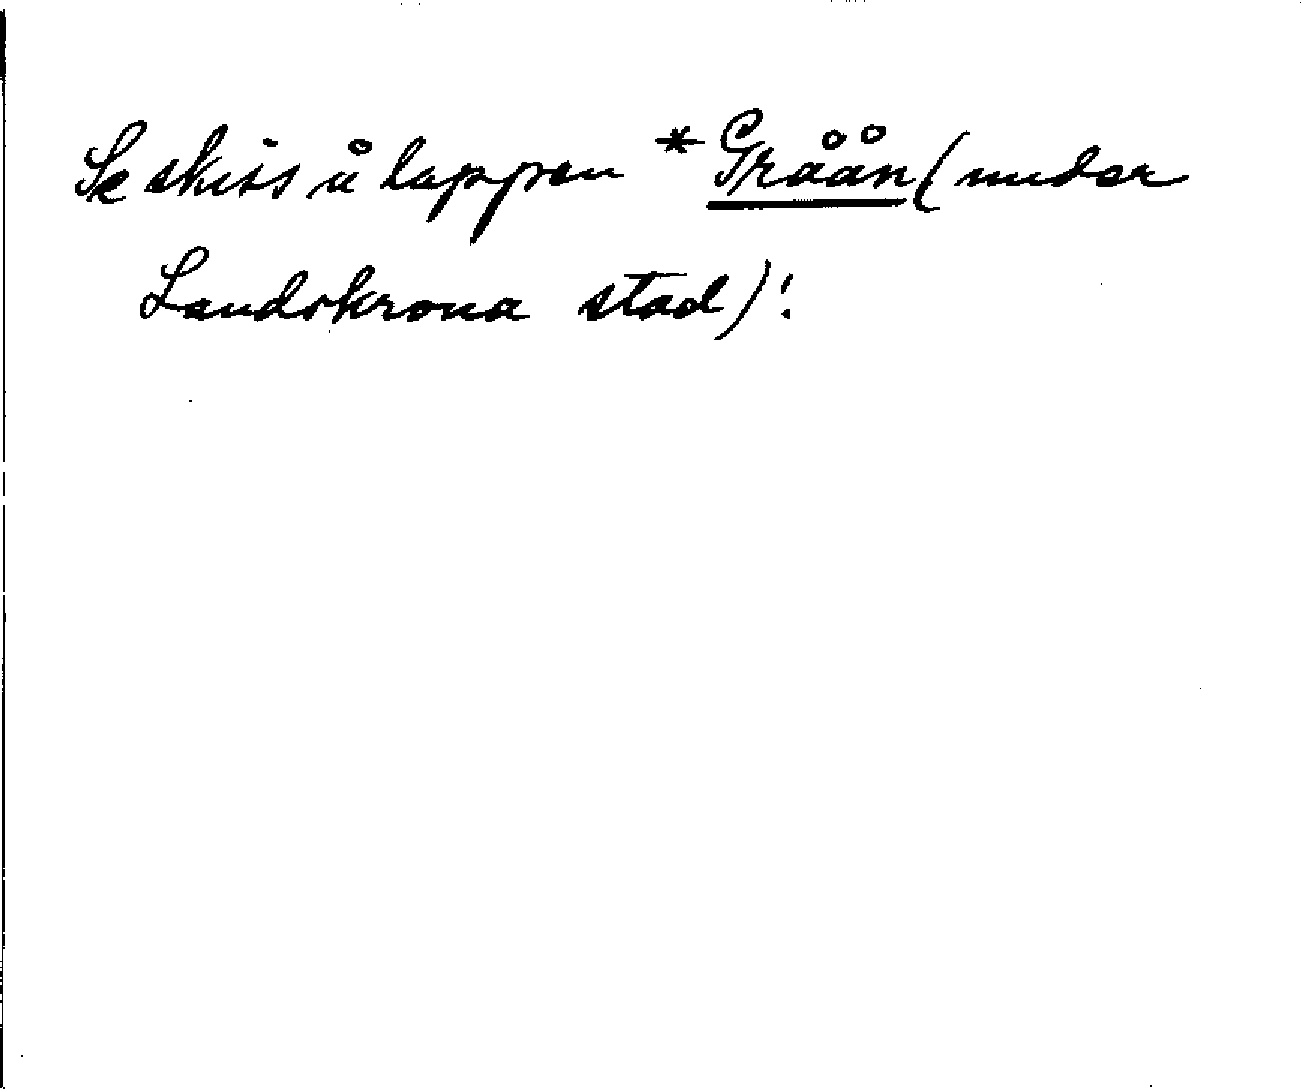 Se skiss å lappen *Gråån (under
Landskrona stad)!